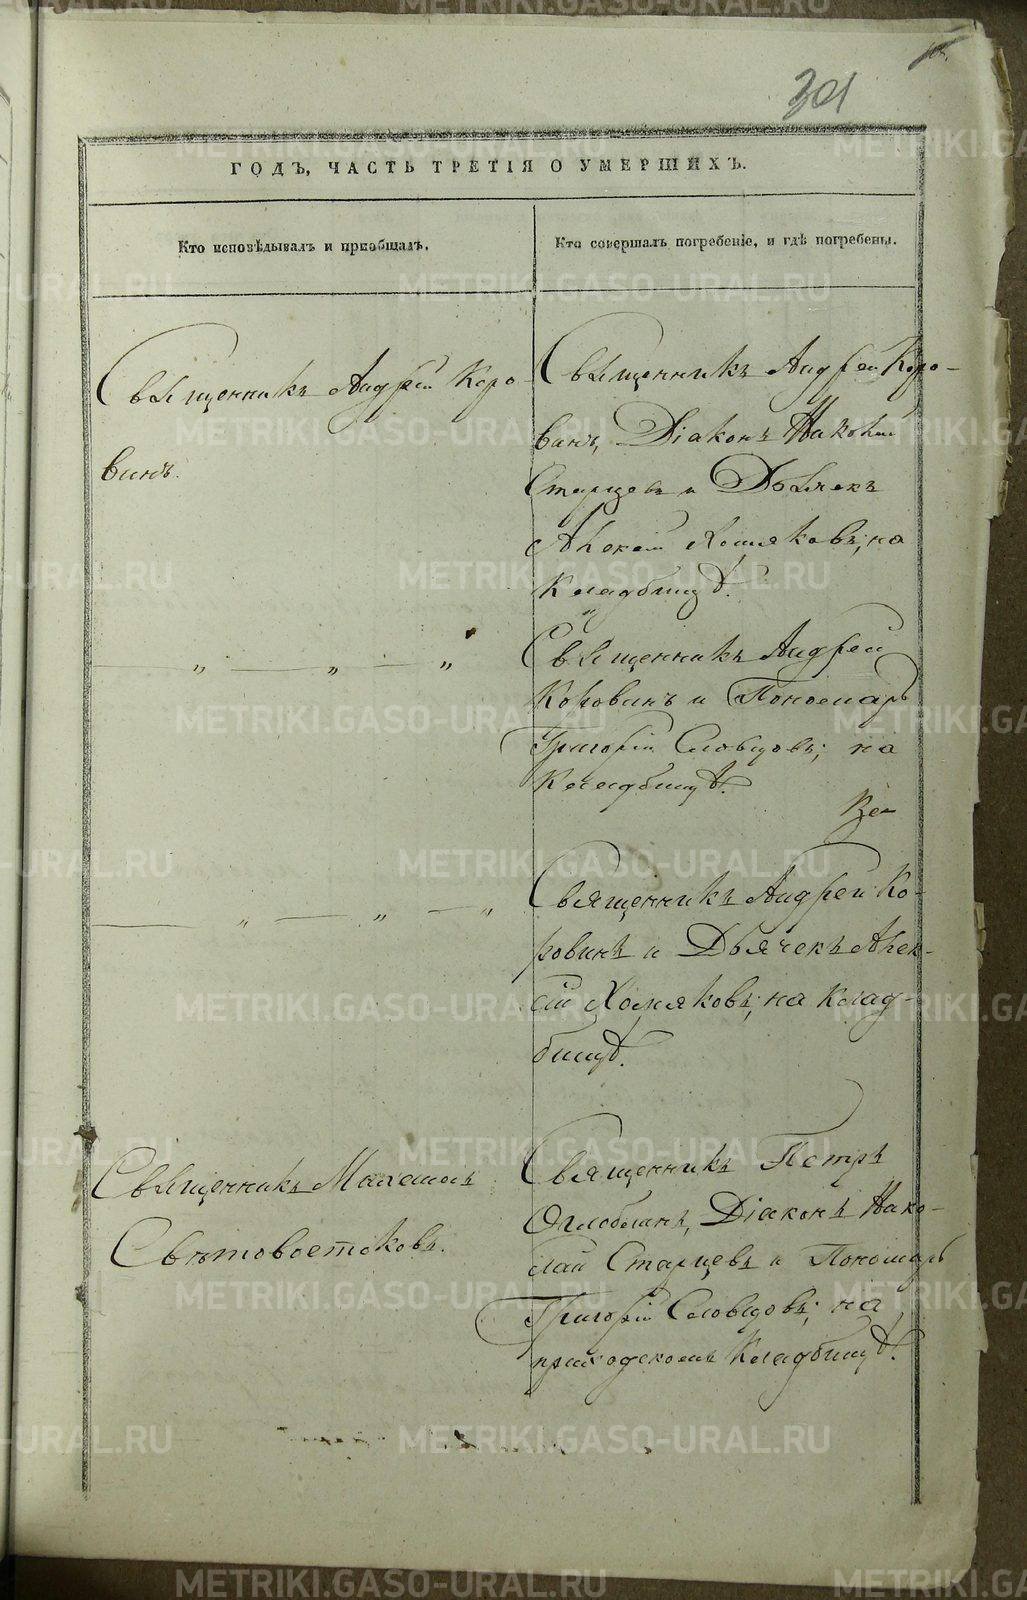 301
ГОДЪ, ЧАСТЬ ТРЕТІЯ О УМЕРШИХЪ.
Кто исповѣдывалъ и пріобщалъ.
Кто совершалъ погребеніе, и гдѣ погребены.
Священникъ Андрей Коро-
винъ.
Священникъ Андрей Коро-
винъ, Діаконъ Николай
Старцевъ и Дьячекъ
Алексѣй Хомяковъ; на
Кладбищѣ.
— „ — „ — „
Священникъ Андрей
Коровинъ и Пономарь
Григорій Словцовъ; на
Кладбищѣ.
— „ — „ — „
Священникъ Андрей Ко-
ровинъ и Дьячекъ Алек-
сѣй Хомяковъ; на клад-
бищѣ.
Священникъ
Свѣтовостоковъ.
Священникъ Петръ
Оглоблинъ, Діаконъ Нико-
лай Старцевъ и Пономарь
Григорій Словцовъ; на
приходскомъ Кладбищѣ.
METRIKI.GASO-URAL.RU